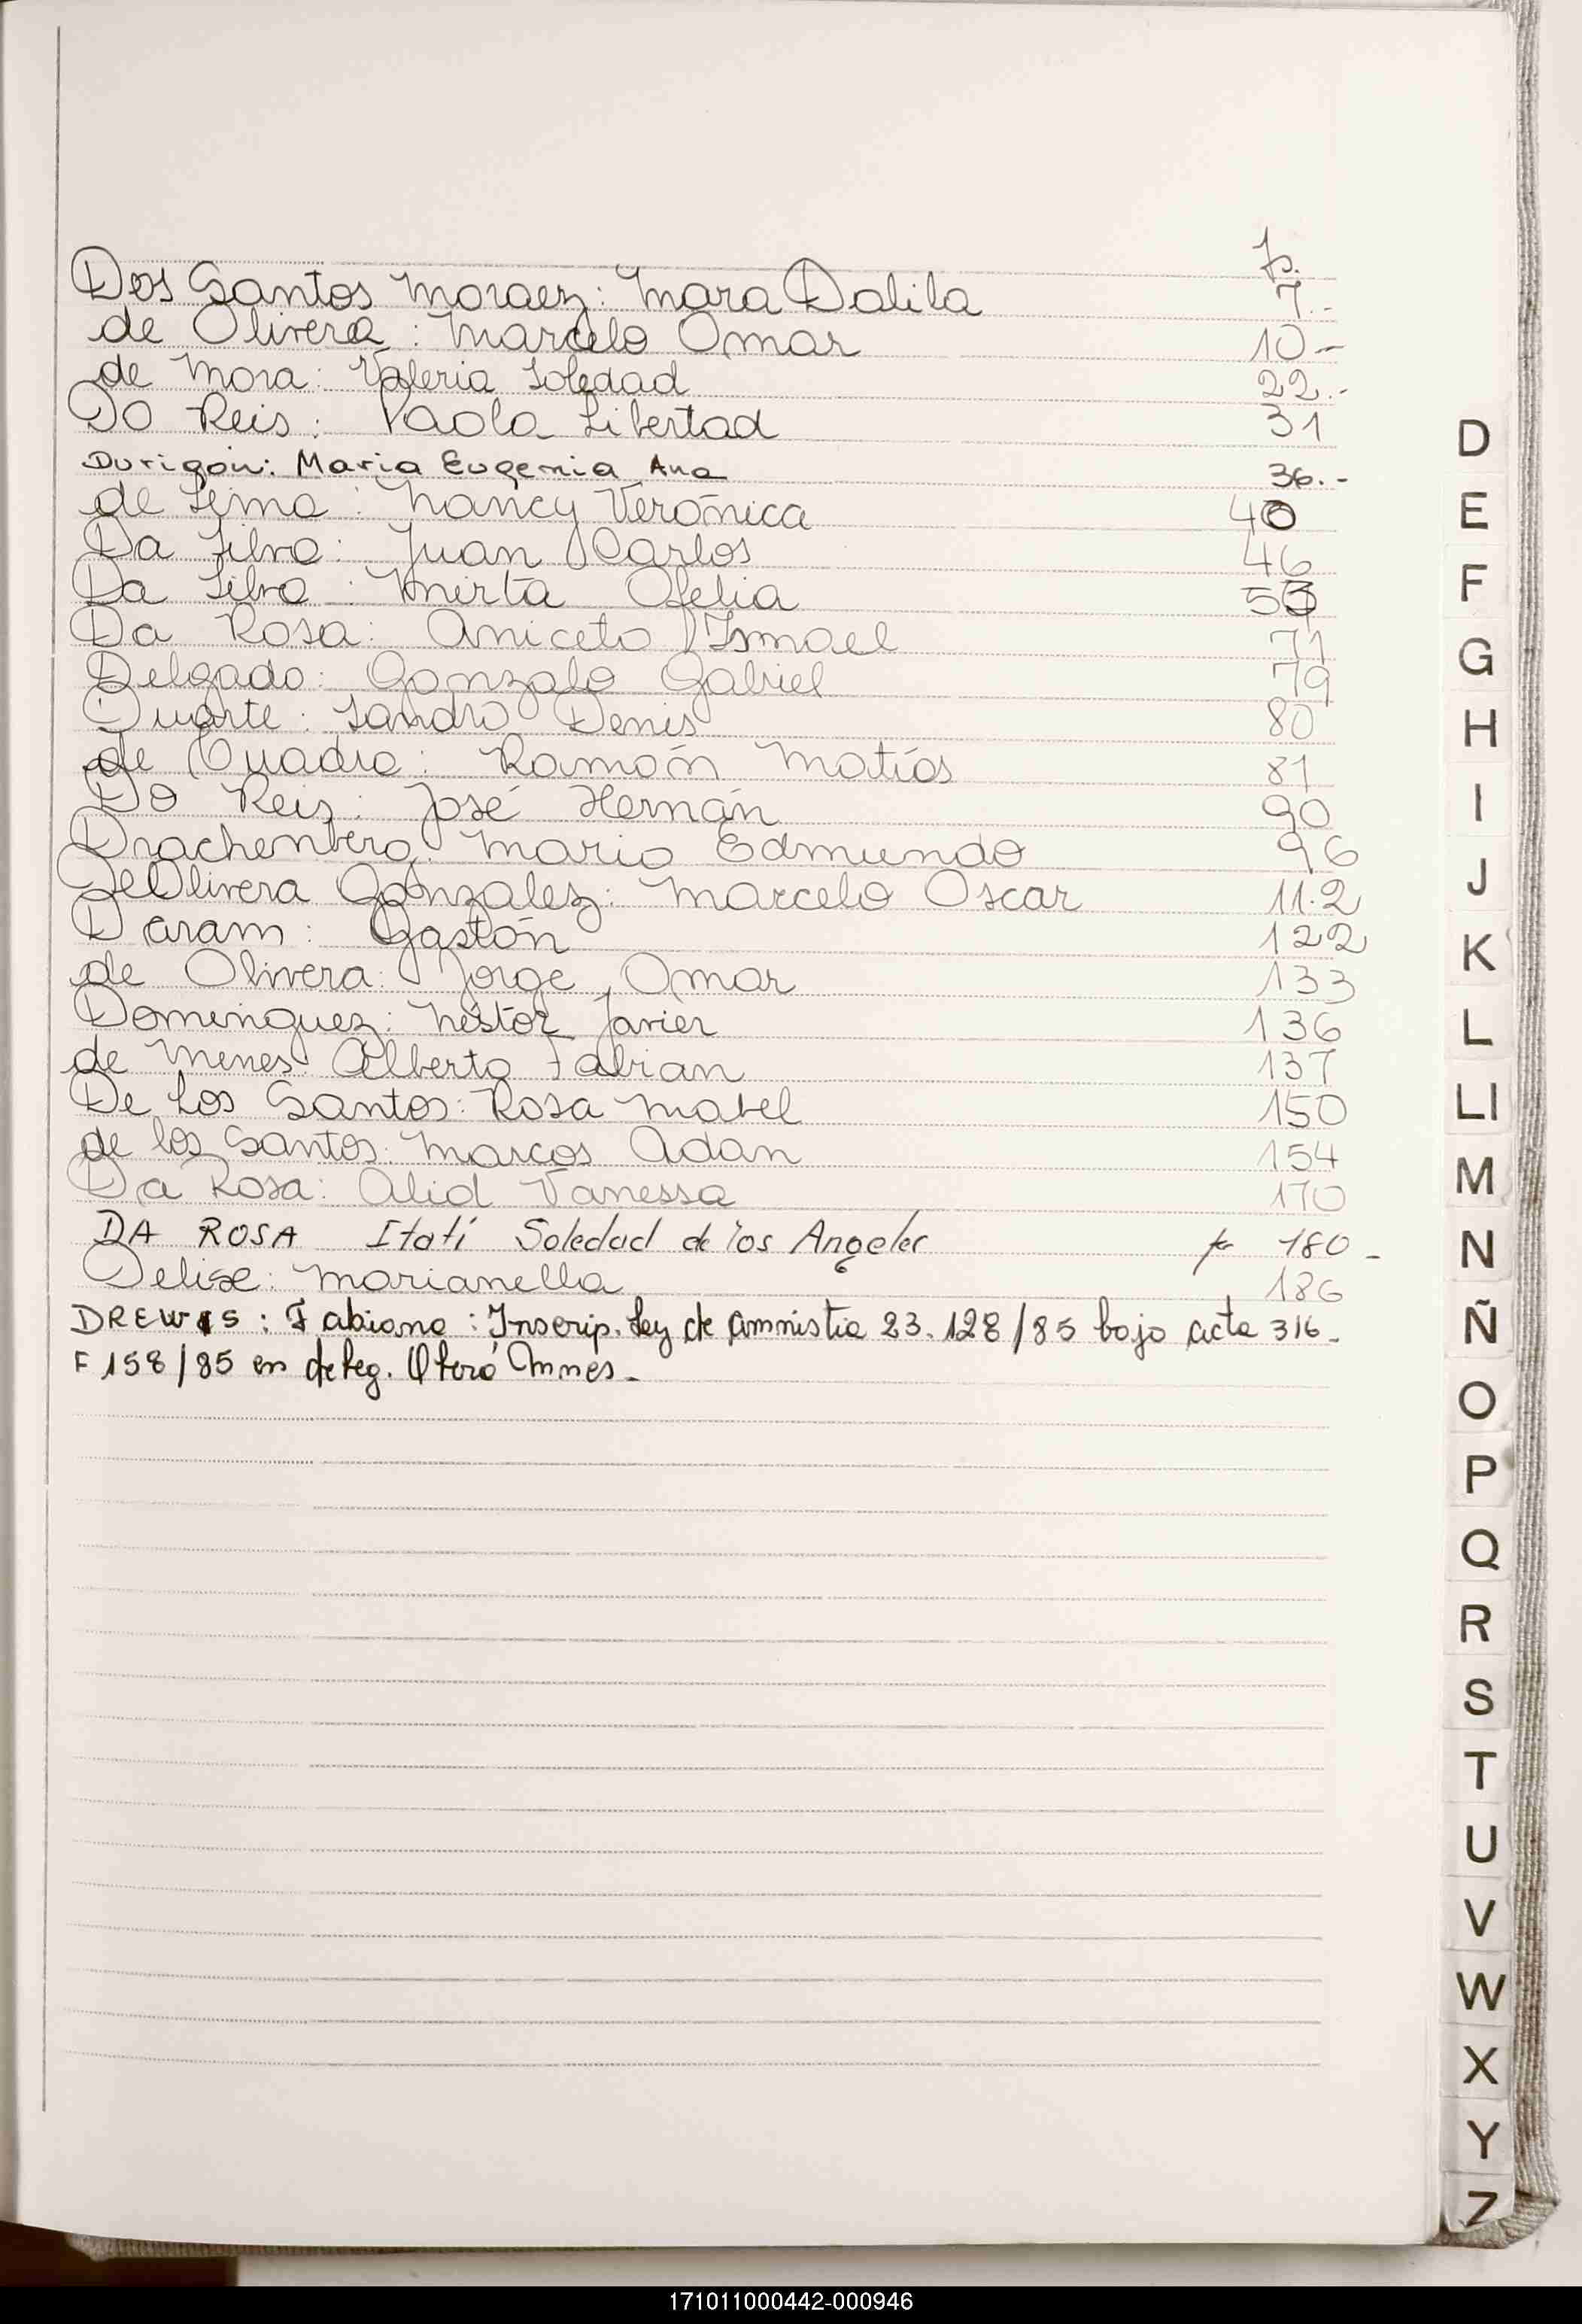 f.
Dos Santos Moraez: Mara Dalila 7.-
de Olivera: Marcelo Omar 10-
de Mora: Valeria Soledad 22.-
Do Reis: Paola Libertad 31
Durigon: Maria Eugenia Ana 36.-
de Lima: Nancy Verónica 40
Da Silva: Juan Carlos 46
Da Silva: Mirta Ofelia 53
Da Rosa: Aniceto Ismael 71
Delgado: Gonzalo Gabriel 79
Duarte: Sandro Denis 80
de Cuadra: Ramón Matías 81
Do Reis: José Hernán 90
Drachenberg: Mario Edmundo 96
De Olivera Gonzalez: Marcelo Oscar 112
Daram: Gastón 122
de Olivera: Jorge Omar 133
Dominguez: Néstor Javier 136
de Menes: Alberto Fabian 137
De Los Santos: Rosa Mabel 150
de los Santos: Marcos Adan 154
Da Rosa: Alid Vanessa 170
DA ROSA Itatí Soledad de los Angeles fº 180-
Delise: Marianella 186
DREWES: Fabiana: Inscrip. Ley de Amnistia 23.128/85 bajo acta 316-
F 158/85 en deleg. Oberá Mnes-
D
E
F
G
H
I
J
K
L
Ll
M
N
Ñ
O
P
Q
R
S
T
U
V
W
X
Y
Z
171011000442-000946